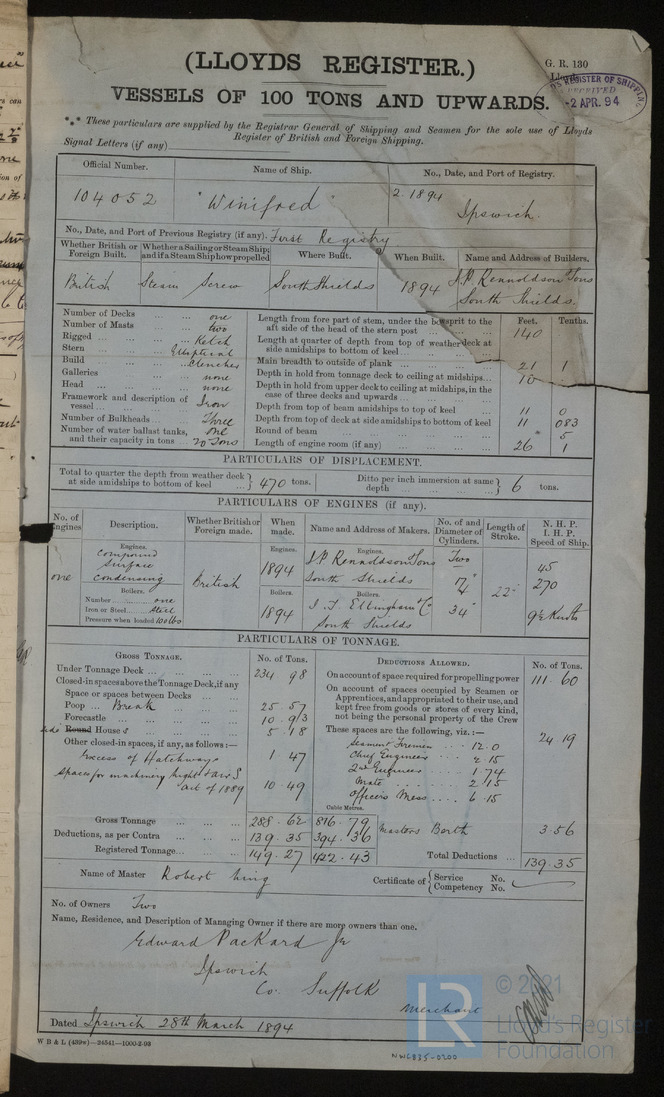 (LLOYDS REGISTER.)
G. R. 130
VESSELS OF 100 TONS AND UPWARDS.
REGISTER OF SHIPPING
RECEIVED
-2 APR. 94
*** These particulars are supplied by the Registrar General of Shipping and Seamen for the sole use of Lloyds
Register of British and Foreign Shipping.
Signal Letters (if any)
Official Number. Name of Ship. No., Date, and Port of Registry.
104052 "Winifred" 2. 1894
Ipswich.
No., Date, and Port of Previous Registry (if any). First Registry
Whether British or Foreign Built. Whether a Sailing or Steam Ship; and if a Steam Ship how propelled Where Built. When Built. Name and Address of Builders.
British Steam Screw South Shields 1894 J.P. Rennoldson & Sons
South Shields.
Number of Decks ... ... one
Number of Masts ... ... two
Rigged ... ... Ketch
Stern ... ... Elliptical
Build ... ... Clencher
Galleries ... ... none
Head ... ... none
Framework and description of vessel ... ... Iron
Number of Bulkheads ... ... Three
Number of water ballast tanks, and their capacity in tons ... one 20 Tons
Feet. Tenths.
Length from fore part of stem, under the bowsprit to the aft side of the head of the stern post ... 140
Length at quarter of depth from top of weather deck at side amidships to bottom of keel ...
Main breadth to outside of plank ... 21 1
Depth in hold from tonnage deck to ceiling at midships... 10
Depth in hold from upper deck to ceiling at midships, in the case of three decks and upwards ...
Depth from top of beam amidships to top of keel ... 11 0
Depth from top of deck at side amidships to bottom of keel 11 083
Round of beam ... " 5
Length of engine room (if any) ... 26 1
PARTICULARS OF DISPLACEMENT.
Total to quarter the depth from weather deck at side amidships to bottom of keel ... } 470 tons. Ditto per inch immersion at same depth ... } 6 tons.
PARTICULARS OF ENGINES (if any).
No. of Engines Description. Whether British or Foreign made. When made. Name and Address of Makers. No. of and Diameter of Cylinders. Length of Stroke. N. H. P. I. H. P. Speed of Ship.
Engines. Engines. Engines.
one Compound Surface condensing British 1894 J.P. Rennoldson & Sons South Shields Two 17" 34" 22" 45 270 9½ Knots
Boilers. Boilers. Boilers.
Number ... one
Iron or Steel ... Steel
Pressure when loaded 100 lbs
1894 South Shields
PARTICULARS OF TONNAGE.
GROSS TONNAGE. No. of Tons.
Under Tonnage Deck ... 234 98
Closed-in spaces above the Tonnage Deck, if any
Space or spaces between Decks ...
Poop ... Break ... 25 57
Forecastle ... 10 93
Side Round Houses ... 5 18
Other closed-in spaces, if any, as follows:—
Excess of Hatchways 1 47
Spaces for machinery light & air S
act of 1889 10 49
Cubic Metres.
Gross Tonnage ... 288. 62 816. 79
Deductions, as per Contra ... 139. 35 394. 36
Registered Tonnage... 149. 27 422. 43
DEDUCTIONS ALLOWED. No. of Tons.
On account of space required for propelling power 111 60
On account of spaces occupied by Seamen or Apprentices, and appropriated to their use, and kept free from goods or stores of every kind, not being the personal property of the Crew
These spaces are the following, viz.:— 24 19
Seamen & Firemen ... 12.0
Chief Engineer ... 2.15
2nd Engineer ... 1.74
Mate ... 2.15
Officers Mess ... 6.15
Masters Berth 3.56
Total Deductions ... 139.35
Name of Master Robert King Certificate of { Service No. Competency No.
No. of Owners Two
Name, Residence, and Description of Managing Owner if there are more owners than one.
Edward Packard Jr
Ipswich
Co. Suffolk
Merchant
Dated Ipswich 28th March 1894
W B & L (439w)—24541—1000-2-93
NWC835-0200
LR
© 2021
Lloyd's Register
Foundation